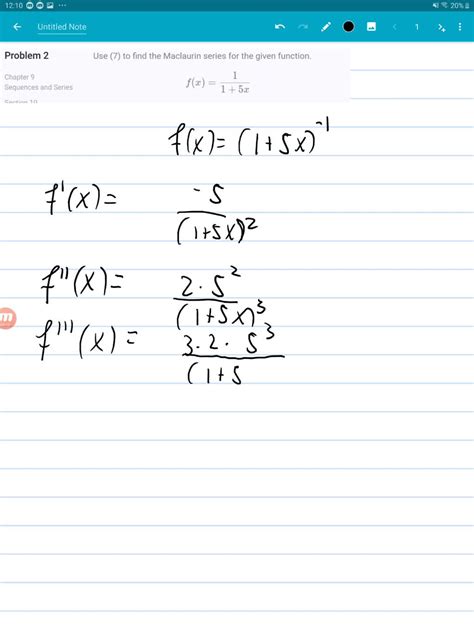 12:10 20%
Untitled Note 1
Problem 2 Use (7) to find the Maclaurin series for the given function.
Chapter 9
Sequences and Series
f(x) = 1 / 1 + 5x
Section 10
f(x) = (1+5x)^-1
f'(x) = -5 / (1+5x)^2
f''(x) = 2·5^2 / (1+5x)^3
f'''(x) = 3·2·5^3 / (1+5
m